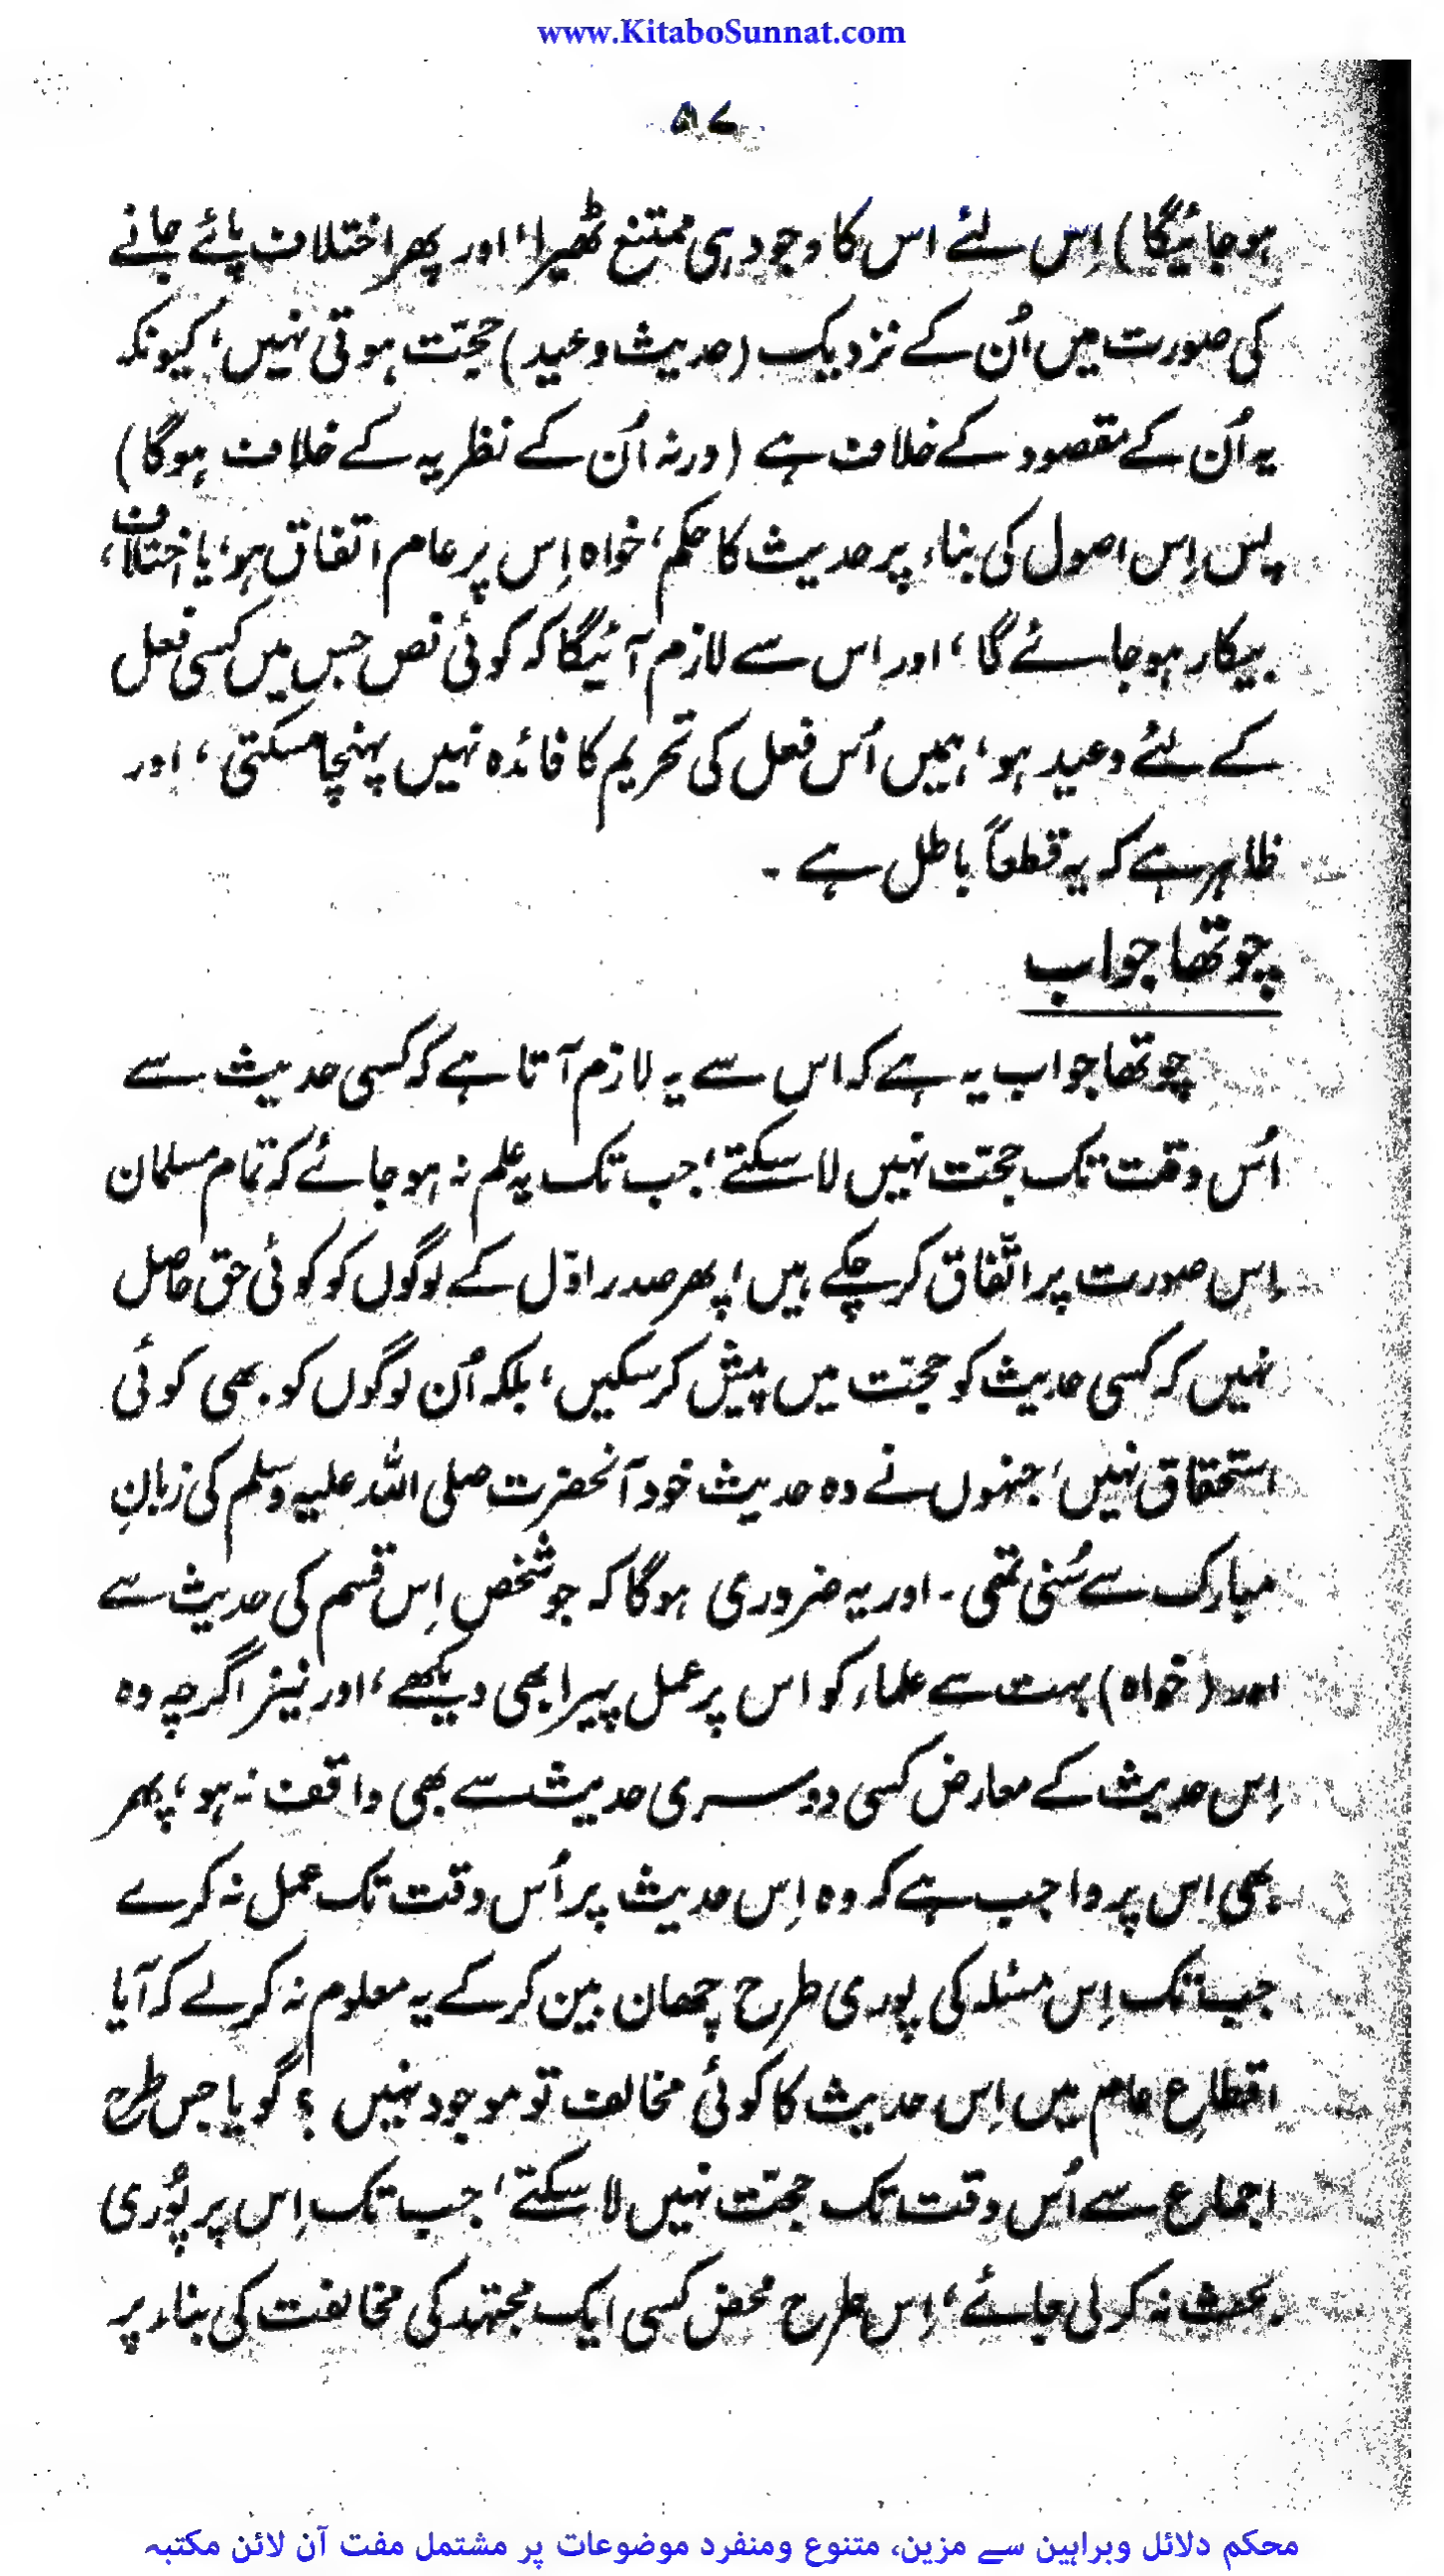 www.KitaboSunnat.com
۵۷
ہو جائیگا) اِس لئے اس کا وجود ہی ممتنع ٹھیرا، اور پھر اختلاف پائے جانے
کی صورت میں اُن کے نزدیک (حدیث وعید) حجّت ہوتی نہیں، کیونکہ
یہ اُن کے مقصود کے خلاف ہے (ورنہ اُن کے نظریہ کے خلاف ہوگا)
پس اِس اصول کی بناء پر حدیث کا حکم، خواہ اِس پر عام اتفاق ہو، یا اختلاف،
بیکار ہو جائے گا، اور اِس سے لازم آئیگا کہ کوئی نص جس میں کسی فعل
کے لئے وعید ہو، ہمیں اُس فعل کی تحریم کا فائدہ نہیں پہنچا سکتی، اور
ظاہر ہے کہ یہ قطعاً باطل ہے ۔
چوتھا جواب
چوتھا جواب یہ ہے کہ اس سے یہ لازم آتا ہے کہ کسی حدیث سے
اُس وقت تک حجّت نہیں لا سکتے، جب تک یہ علم نہ ہو جائے کہ تمام مسلمان
اِس صورت پر اتّفاق کر چکے ہیں، پھر صدر اوّل کے لوگوں کو کوئی حق حاصل
نہیں کہ کسی حدیث کو حجّت میں پیش کر سکیں، بلکہ اُن لوگوں کو بھی کوئی
استحقاق نہیں، جنہوں نے وہ حدیث خود آنحضرت صلی اللہ علیہ وسلم کی زبانِ
مبارک سے سُنی تھی ۔ اور یہ ضروری ہوگا کہ جو شخص اِس قسم کی حدیث سے
اور (خواہ) بہت سے علماء کو اس پر عمل پیرا بھی دیکھے، اور نیز اگرچہ وہ
اِس حدیث کے معارض کسی دوسری حدیث سے بھی واقف نہ ہو، پھر
بھی اس پر واجب ہے کہ وہ اِس حدیث پر اُس وقت تک عمل نہ کرے
جب تک اِس مسئلہ کی پوری طرح چھان بین کر کے یہ معلوم نہ کر لے کہ آیا
اقطاعِ عام میں اِس حدیث کا کوئی مخالف تو موجود نہیں ؟ گویا جس طرح
اجماع سے اُس وقت تک حجّت نہیں لا سکتے، جب تک اِس پر پُوری
بحث نہ کر لی جائے، اِس طرح محض کسی ایک مجتہد کی مخالفت کی بناء پر
محکم دلائل وبراہین سے مزین، متنوع ومنفرد موضوعات پر مشتمل مفت آن لائن مکتبہ